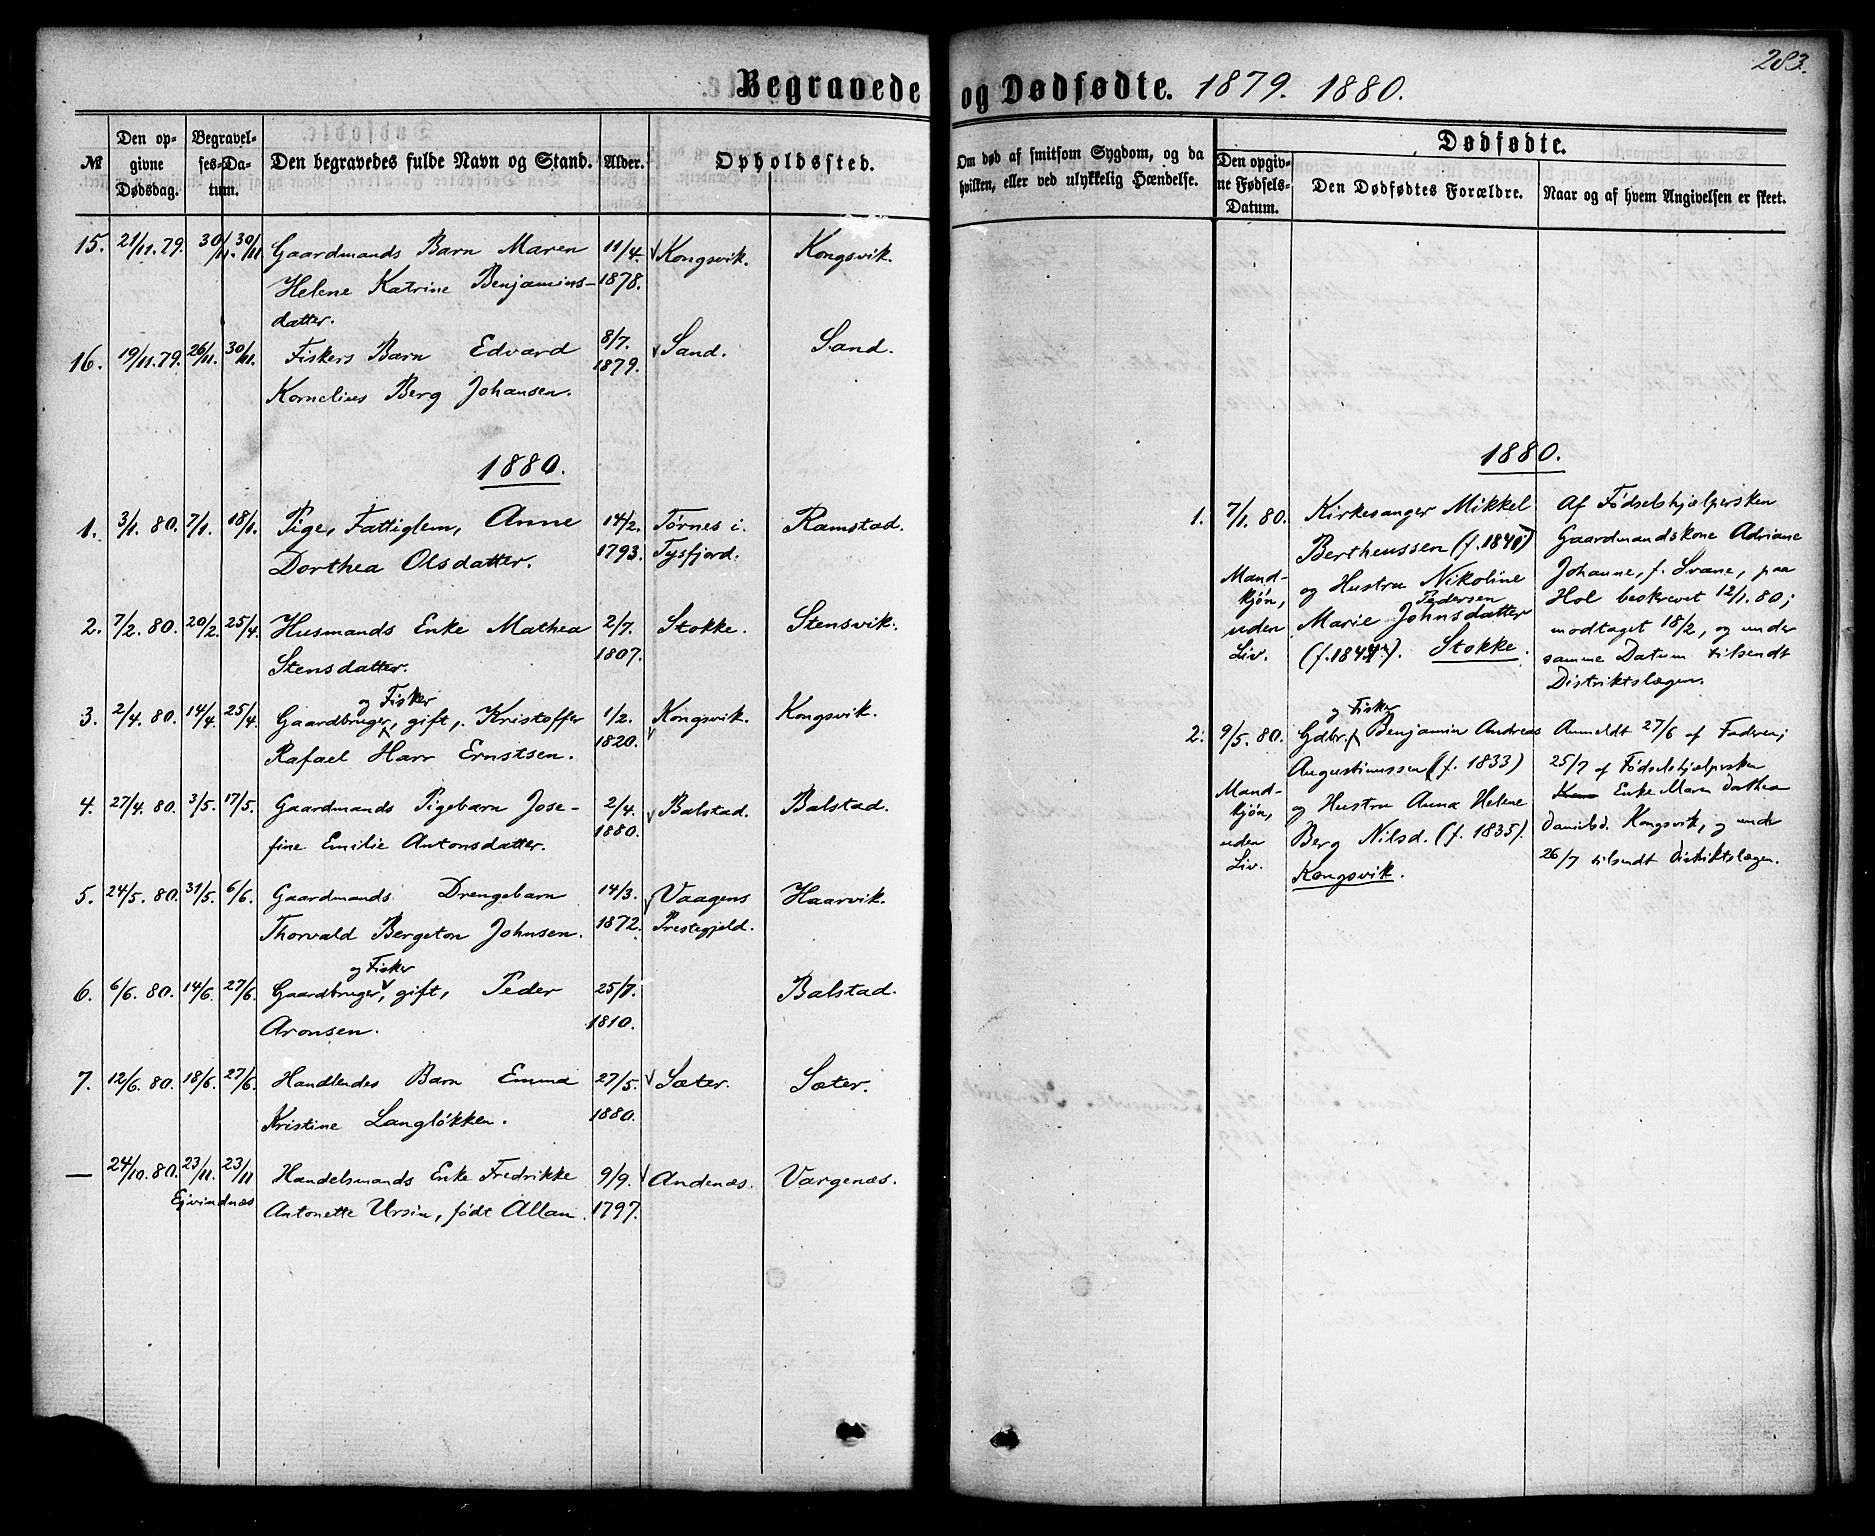 283.
Begravede og Dødfødte. 1879. 1880.
№
Den op-
givne
Dødsdag.
Begravel-
ses-Da-
tum.
Den begravedes fulde Navn og Stand.
Alder.
Opholdssted.
Om død af smitsom Sygdom, og da
hvilken, eller ved ulykkelig Hændelse.
Dødfødte.
Den opgiv-
ne Fødsels-
Datum.
Den Dødfødtes Forældre.
Naar og af hvem Angivelsen er skeet.
15. 21/11. 79. 30/11. 30/11 Gaardmands Barn Maren 11/4. Kongsvik. Kongsvik.
Helene Katrine Benjamins- 1878.
datter.
16. 19/11. 79. 26/11. 30/11. Fiskers Barn Edvard 8/7. Sand. Sand.
Kornelius Berg Johansen. 1879.
1880.
1. 3/1. 80. 7/1. 18/1. Pige, Fattiglem, Anne 14/2. Tørnes i Ramstad.
Dorthea Olsdatter. 1793. Tysfjord.
2. 7/2. 80. 20/2. 25/4. Husmands Enke Mathea 2/7. Stokke. Stensvik.
Stensdatter. 1807.
og Fisker
3. 2/4. 80. 14/4. 25/4. Gaardbruger, gift, Kristoffer 1/2. Kongsvik. Kongsvik.
Rafael Harr Ernstsen. 1820.
4. 27/4. 80. 3/5. 17/5. Gaardmands Pigebarn Jose- 2/4. Balstad. Balstad.
fine Emilie Antonsdatter. 1880.
5. 24/5. 80. 31/5. 6/6. Gaardmands Drengebarn 14/3. Vaagens Haarvik.
Thorvald Bergeton Johnsen. 1872. Prestegjeld.
og Fisker
6. 6/6. 80. 14/6. 27/6. Gaardbruger, gift, Peder 25/7. Balstad.
Aronsen. 1810.
7. 12/6. 80. 18/6. 27/6. Handlendes Barn Emma 27/5. Sæter. Sæter.
Kristine Langløkken. 1880.
— 24/10. 80. 23/11. 23/11 Handelsmands Enke Fredrikke 9/9. Andenæs. Vargenæs.
Ejvindnæs Antonette Ursin, født Allan. 1797.
1880.
1. 7/1. 80. Kirkesanger Mikkel
Bertheussen (f. 1840)
Mand-
kjøn,
uden
Liv.
og Hustru Nikoline
Pedersen
Marie Johnsdatter
(f. 1844). Stokke.
Af Fødselshjælpersken
Gaardmandskone Adriane
Johanne, f. Svane, paa
Hol beskrevet 12/1. 80;
modtaget 18/2, og under
samme Datum tilsendt
Distriktslægen.
og Fisker
2. 9/5. 80. Gdbr. Benjamin Andreas
Augustinussen (f. 1833)
Mand-
kjøn,
uden
Liv.
og Hustru Anna Helene
Berg Nilsd. (f. 1835).
Kongsvik.
Anmeldt 27/6 af Faderen;
25/7 af Fødselshjælpersken
Enke Maren Dorthea
Danielsd. Kongsvik, og under
26/7 tilsendt Distriktslægen.